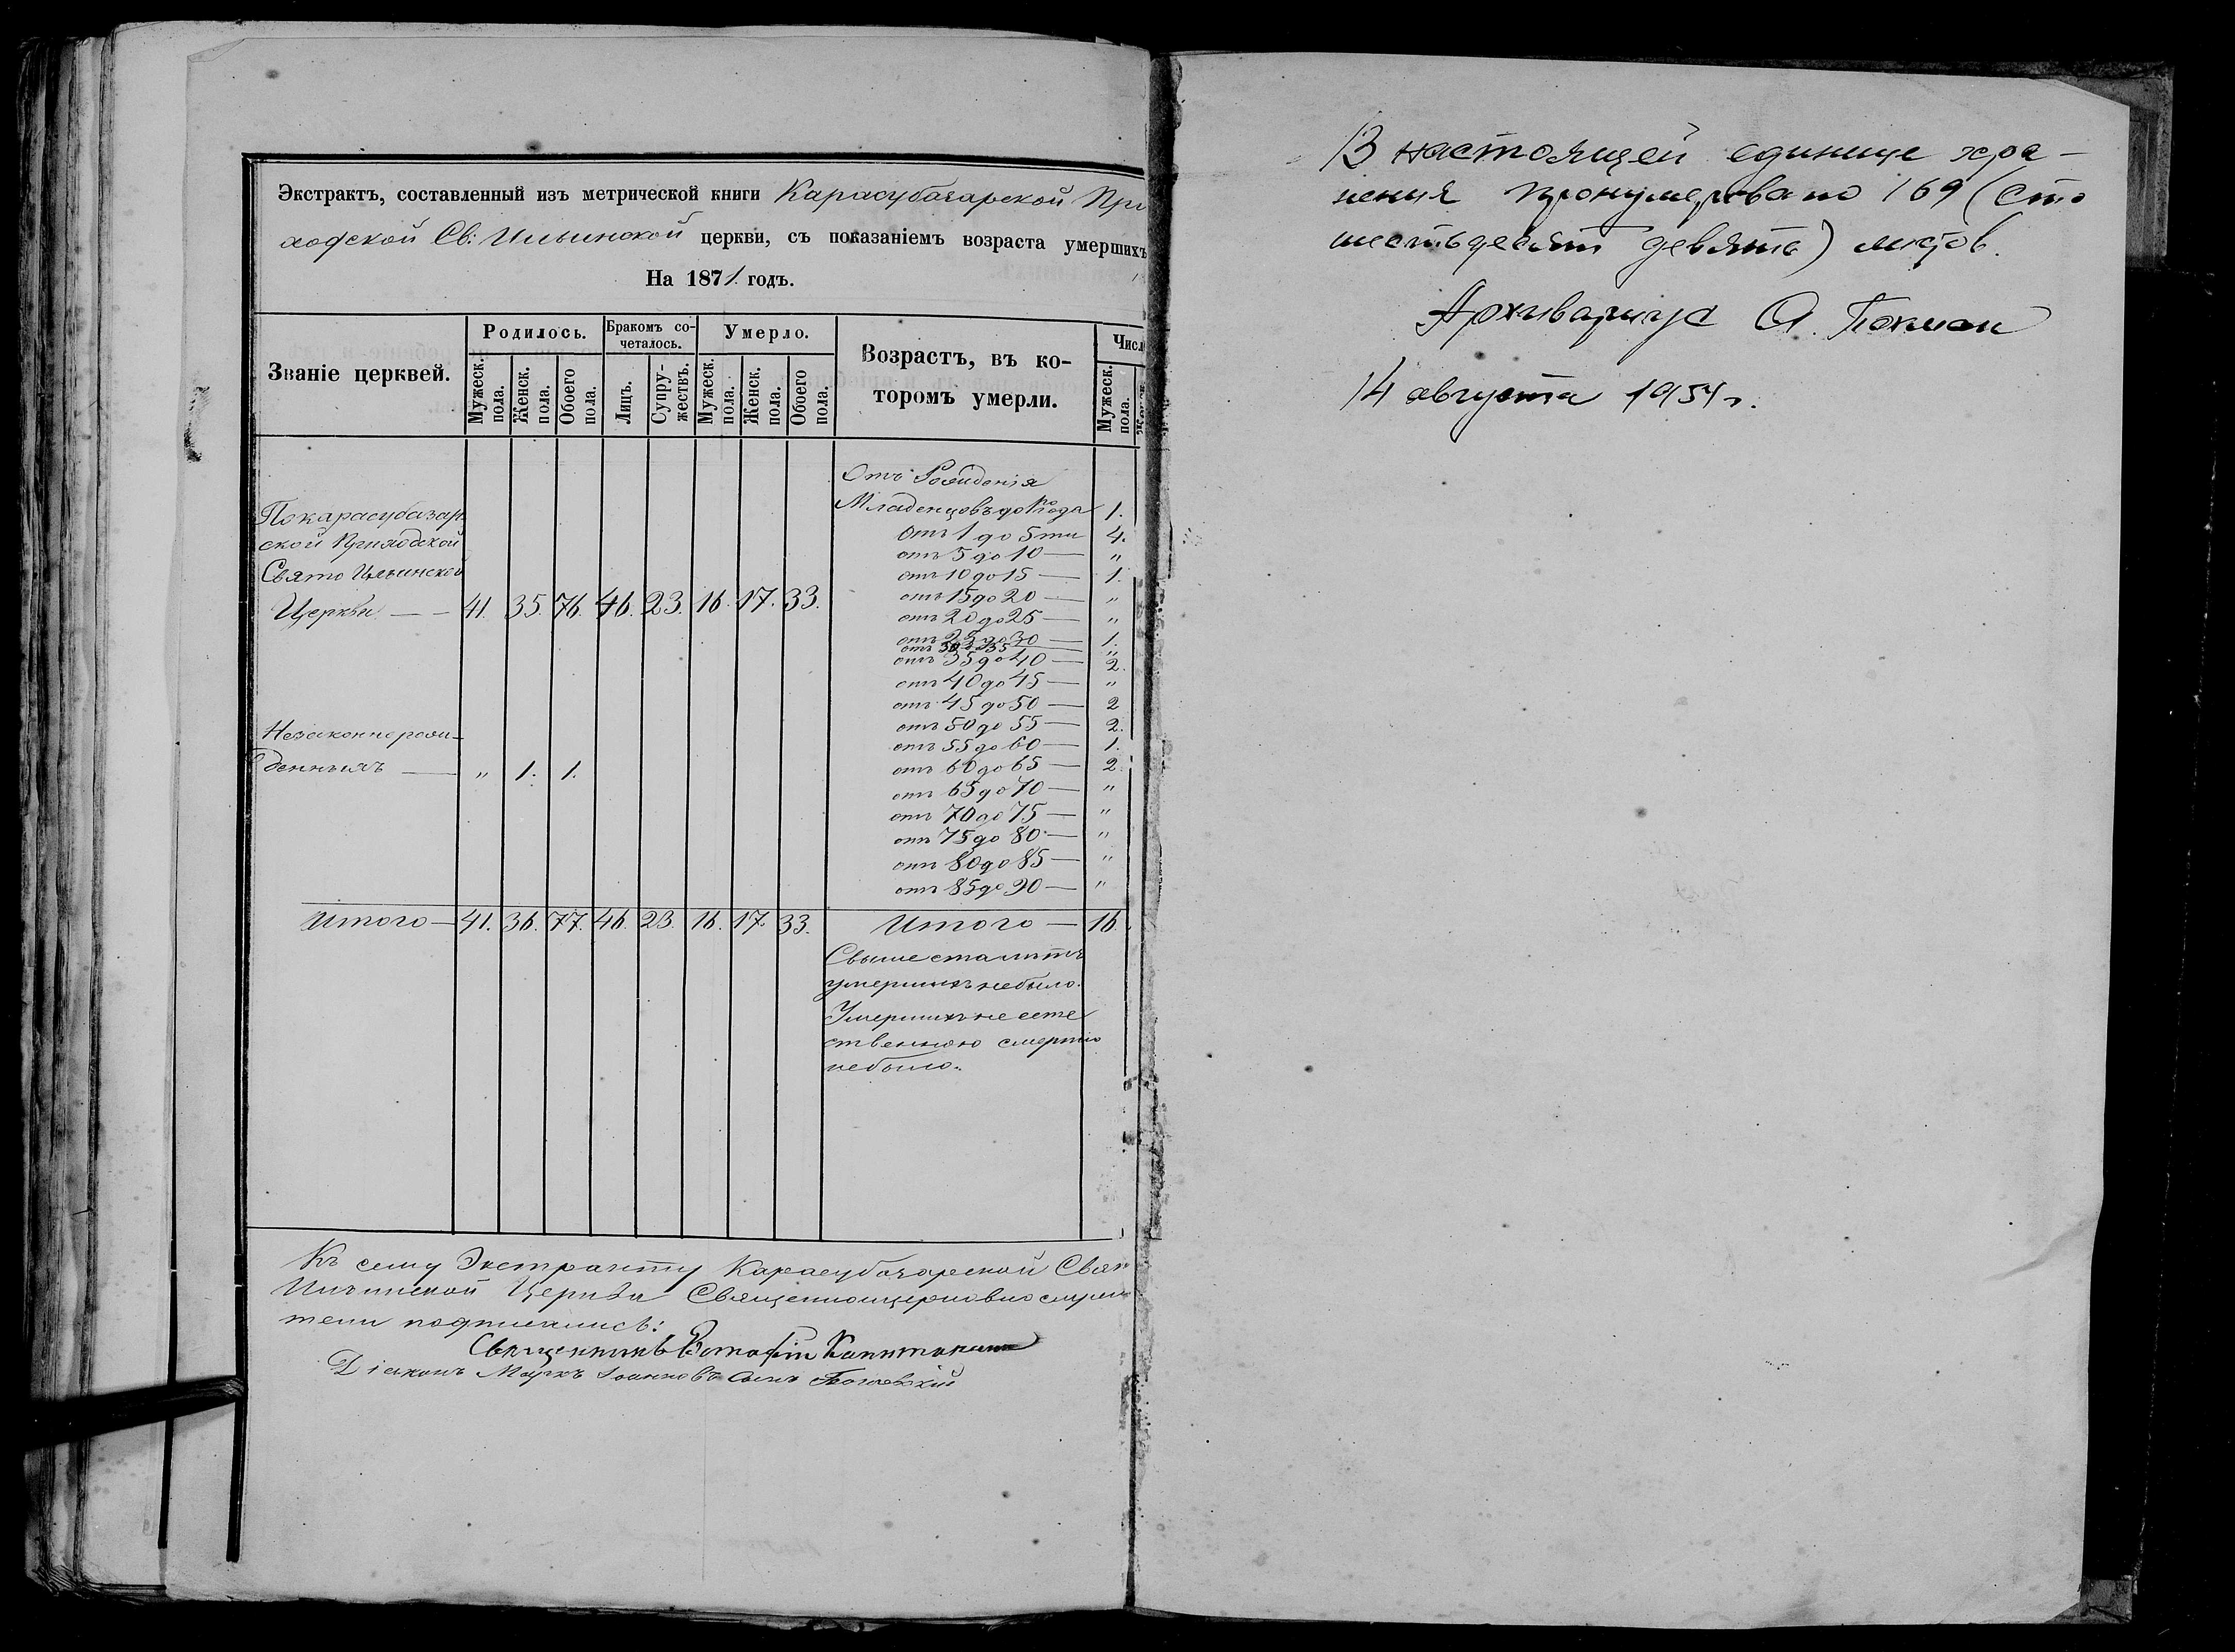 Экстрактъ, составленный изъ метрической книги Карасубазарской При
ходской Св: Ильинской церкви, съ показаніемъ возраста умершихъ
На 1871 годъ.
Званіе церквей.
Родилось.
Бракомъ со-
четалось.
Умерло.
Возрастъ, въ ко-
торомъ умерли.
Числ
Мужеск. пола.
Женск. пола.
Обоего пола.
Лицъ.
Супру-
жествъ.
Мужеск. пола.
Женск. пола.
Обоего пола.
Мужеск. пола.
Отъ Рожденія
Младенцовъ до года 1.
отъ 1 до 5ти 4.
отъ 5 до 10 — "
отъ 10 до 15 — 1.
отъ 15 до 20 — "
отъ 20 до 25 — "
отъ 25 до 30 — 1.
отъ 30 до 35 — "
отъ 35 до 40 — 2.
отъ 40 до 45 — "
отъ 45 до 50 — 2
отъ 50 до 55 — 2.
отъ 55 до 60 — 1.
отъ 60 до 65 — 2.
отъ 65 до 70 — "
отъ 70 до 75 — "
отъ 75 до 80 — "
отъ 80 до 85 — "
отъ 85 до 90 — "
По карасубазар
ской Приходской
Свято Ильинской
Церкви — 41. 35. 76. 46. 23. 16. 17. 33.
Незаконнорож-
денныхъ — " 1. 1.
Итого — 41. 36. 77. 46. 23. 16. 17. 33. Итого — 16.
Свыше ста лѣтъ
умершихъ небыло.
Умершихъ не есте
ственною смертію
небыло.
Къ сему Экстракту Карасубазарской Свят
Ильинской Церкви Священноцерковнослужи
тели подписались:
Священникъ
Діаконъ Маркъ Іоанновъ сынъ
В настоящей единице хра-
нения пронумеровано 169 (сто
шестьдесят девять) листов.
Архивариус
14 августа 1954 г.